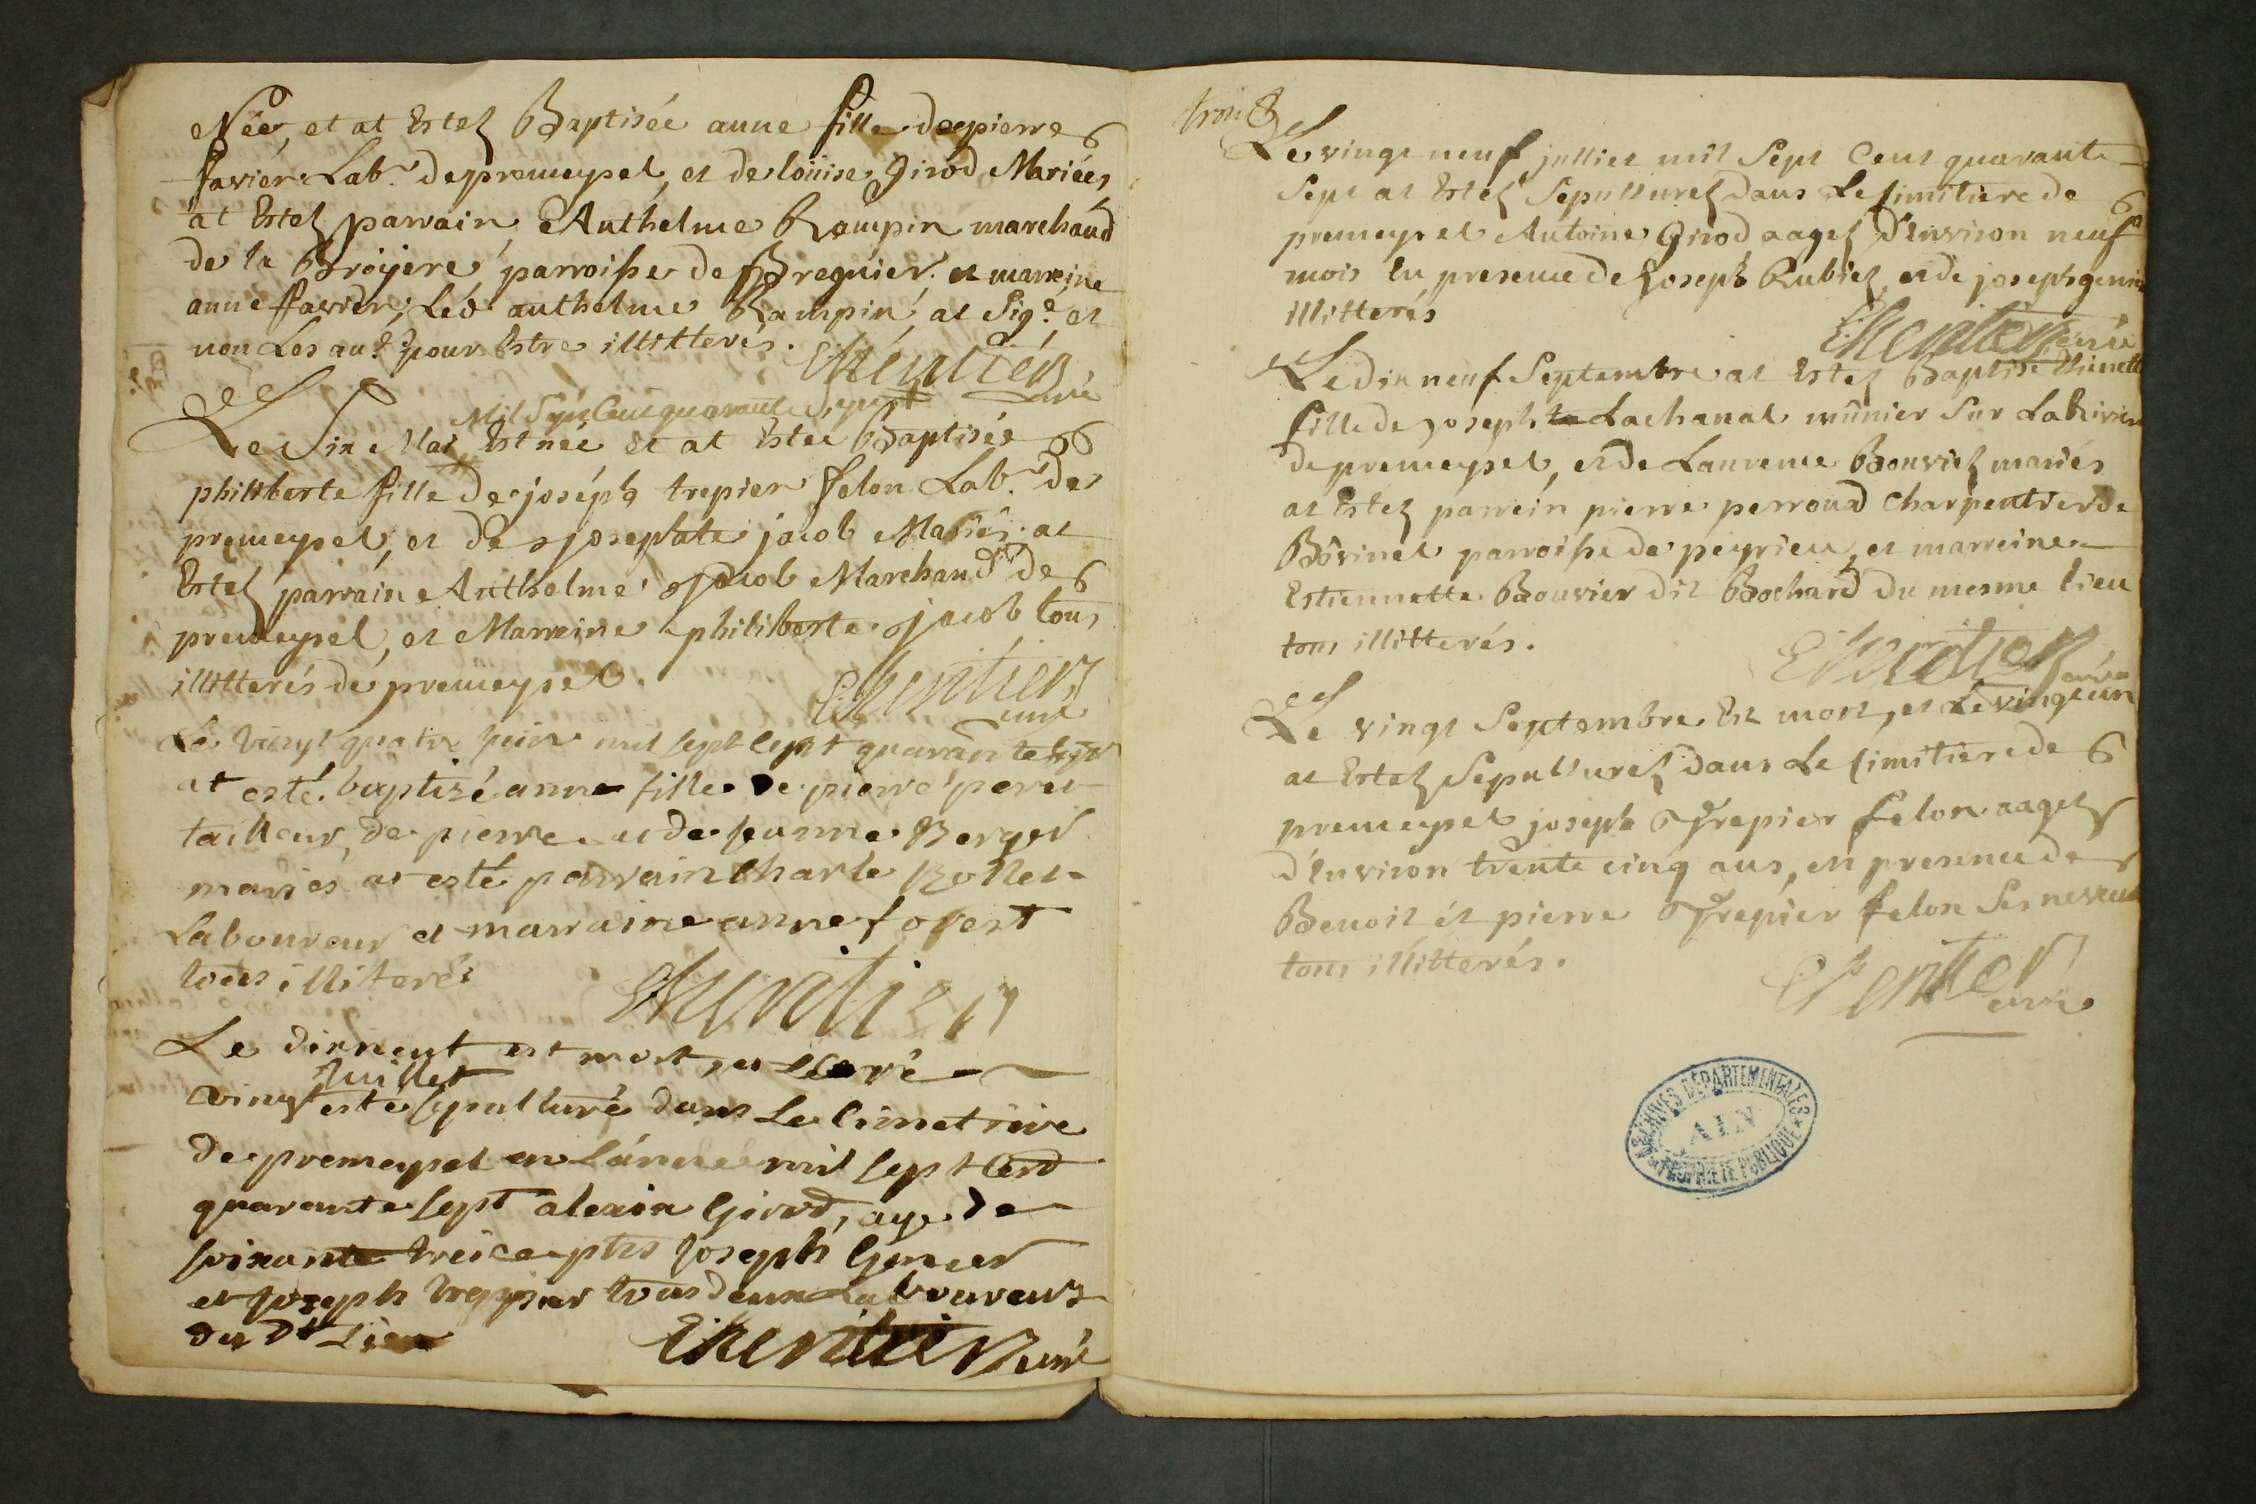 Née, et at Estez Baptisée anne fille de pierre
favier Lab.r de premeysel, et de loüise Girod Mariés,
at Estez parrain Anthelme Rampin marchand
de la Broÿere parroisse de Bregnier, et marreine
anne favier; Led. anthelme Rampin at Sig.é et
non Les au.es pour Estre illitterés.
Curé
Mil Sept Cent quarante Sept
Le Six Mai Est née et at Estée Baptisée
philiberte fille de joséph trepier felon Lab.r de
premeysel, et de josephte jacob Mariés, at
Estez parrain Anthelme jacob Marchand de
premeysel, et Marreine philiberte jacob tous
illitterés de premeysel.
curé
Le vingt quatre juin mil sept cent quarante sept
at esté baptizé anne fille de pierre
tailleur de pierre et de jeanne Berger
mariés at esté parrain Charle Bollet
Laboureur et marraine anne foret
tous illiterés
Le dixneuf est mort, et Le
vingt juillet esté sepulturé dans Le cimetiere
de premeysel en L'année mil sept cent
quarante sept alexin Girod, age de
soixante treice pnts joseph Genier
et joseph trepier tous deux Laboureurs
du dt Lieu
curé
trois
Le vingt neuf julliet mil Sept Cent quarante
Sept at Estéz Sepulturez dans Le simitiere de
premeysel Antoine Girod aagez d'Environ neuf
mois En presence de joseph Rubiez, et de joseph genie
illitterés
curé
Le dix neuf Septembre at Estez Baptisé Etienette
fille de joseph Lachanal mûnier Sur La Rivier
de premeysel, et de Laurence Bouviez mariés
at Estez parrein pierre perroud Charpentier de
Bovinel parroisse de peyrieu, et marreine
Estiennette Bouvier dit Bochard du mesme lieu
tous illitterés.
curé
Le vingt Septembre Est mort, et Le vingt un
at Estez Sepulturez dans Le simitiere de
premeysel joseph Trepier felon aagez
d'Environ trente cinq ans, en presence de
Benoit et pierre Trepier felon Ses neveux
tous illitterés.
curé
ARCHIVES DÉPARTEMENTALES
AIN
PROPRIÉTÉ PUBLIQUE